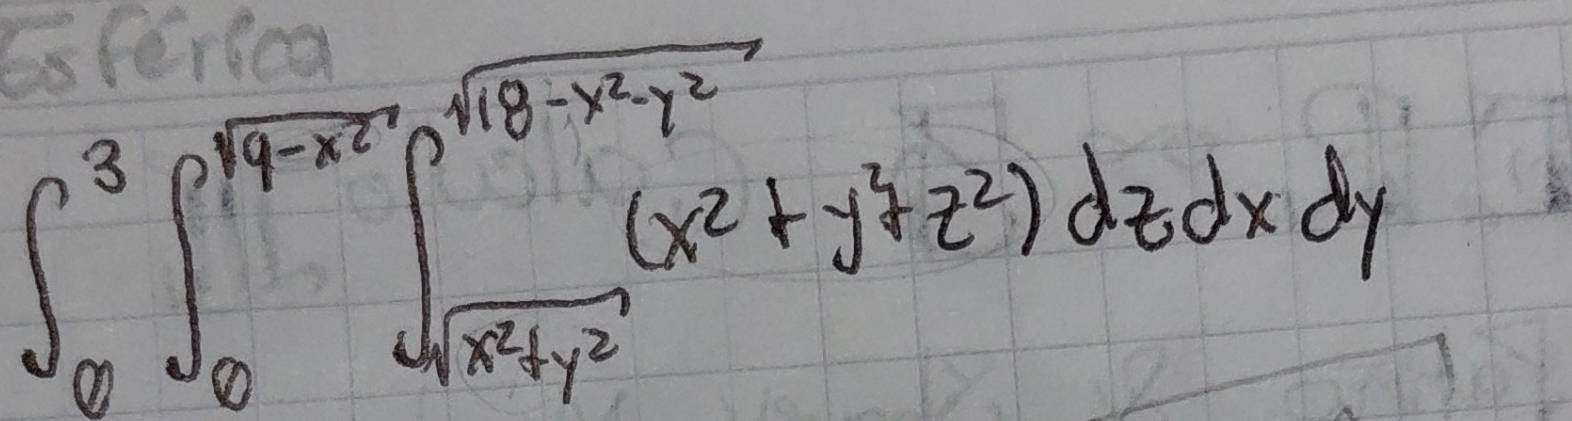 Esférica
∫₀³ ∫₀^√(9-x²) ∫_√(x²+y²)^√(18-x²-y²) (x²+y²+z²) dz dx dy